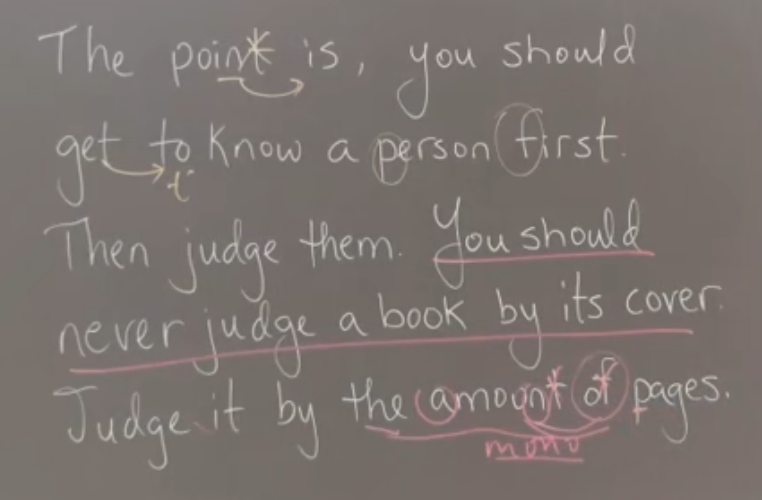 The point is, you should
get to know a person first.
t
Then judge them. You should
never judge a book by its cover.
Judge it by the amount of pages.
mono